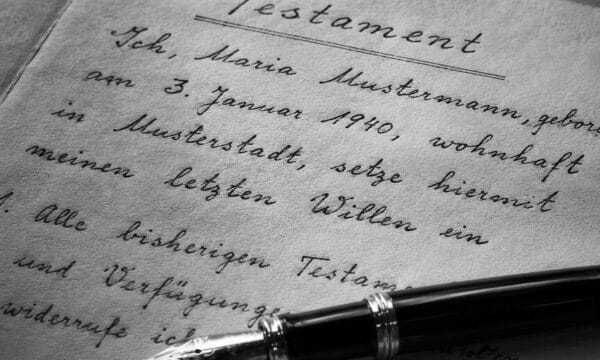 Testament
Ich, Maria Mustermann, gebore
am 3. Januar 1940, wohnhaft
in Musterstadt, setze hiermit
meinen letzten Willen ein
1. Alle bisherigen Testame
und Verfügunge
widerrufe ich